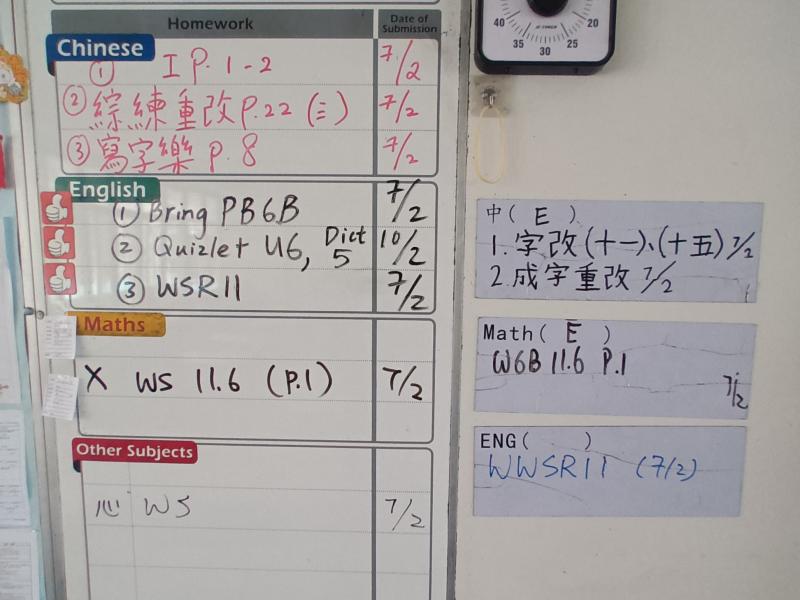 Homework Date of Submission
Chinese
① I P.1-2 7/2
② 綜練重改 P.22 (三) 7/2
③ 寫字樂 P.8 7/2
English
① Bring PB6B 7/2
② Quizlet U6, Dict 5 10/2
③ WSR11 7/2
Maths
X WS 11.6 (P.1) 7/2
Other Subjects
心 WS 7/2
40 20
35 30 25
中( E )
1. 字改(十一)、(十五) 7/2
2. 成字重改 7/2
Math( E )
W6B 11.6 P.1
7/2
ENG( )
WWSR11 (7/2)